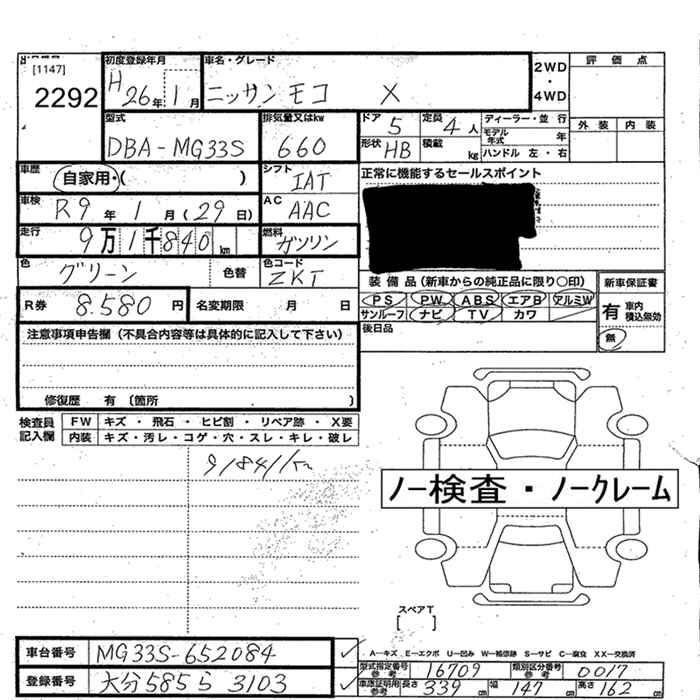 [1147]
2292
初度登録年月
H26年1月
車名・グレード
ニッサン モコ X
2WD
・
4WD
評価点
外装 内装
型式
DBA-MG33S
排気量又はkw
660
ドア 5
定員 4人
ディーラー・並行
モデル年式 年
ハンドル 左・右
形状 HB
積載 kg
車歴
自家用・( )
シフト
IAT
正常に機能するセールスポイント
車検
R9年1月(29日)
AC
AAC
走行
9万1千840km
燃料
ガソリン
色
グリーン
色替
色コード
ZKT
装備品(新車からの純正品に限り○印)
PS PW ABS エアB アルミW
サンルーフ ナビ TV カワ
新車保証書
有 車内積込無効
無
後日品
R券 8.580円
名変期限 月 日
注意事項申告欄(不具合内容等は具体的に記入して下さい)
修復歴 有 〔箇所 〕
検査員記入欄
FW キズ・飛石・ヒビ割・リペア跡・X要
内装 キズ・汚レ・コゲ・穴・スレ・キレ・破レ
91841km
ノー検査・ノークレーム
スペアT
[ ]
A―キズ E―エクボ U―凹み W―補修跡 S―サビ C―腐食 XX―交換済
車台番号 MG33S-652084
登録番号 大分585ら3103
型式指定番号 参考 16709
類別区分番号 参考 0017
車庫証明用 参考 長さ 339cm 幅 147cm 高さ 162cm